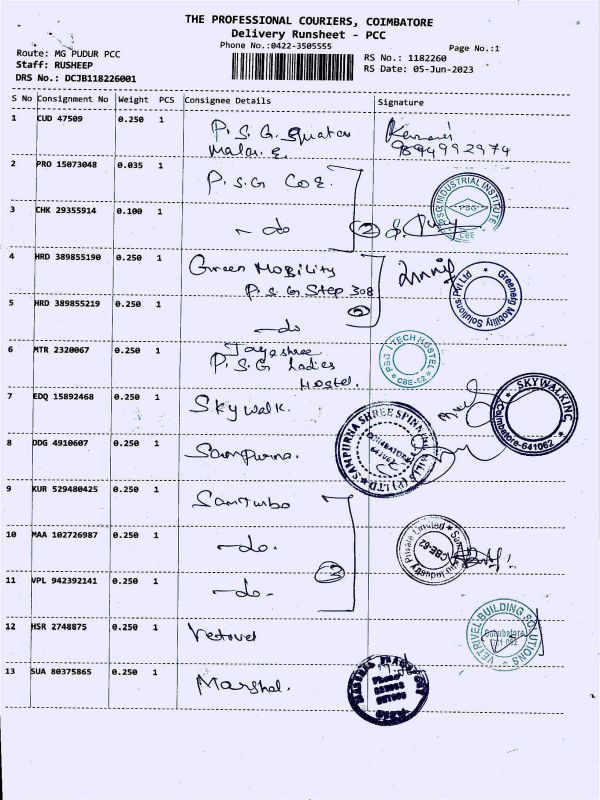 THE PROFESSIONAL COURIERS, COIMBATORE
Delivery Runsheet - PCC
Phone No.:0422-3505555
Page No.:1
Route: MG PUDUR PCC
Staff: RUSHEEP
DRS No.: DCJB118226001
RS No.: 1182260
RS Date: 05-Jun-2023
S No Consignment No Weight PCS Consignee Details Signature
1 CUD 47509 0.250 1 P.S.G. 
9894992974
2 PRO 15073048 0.035 1 P.S.G COE.
PSG INDUSTRIAL INSTITUTE PSG CBE
3 CHK 29355914 0.100 1 - do 2
4 HRD 389855190 0.250 1 Green Mobility
P.S.G Step 308
Greeneig Mobility Solutions Pvt Ltd
5 HRD 389855219 0.250 1 - do 2
6 MTR 2320067 0.250 1 Jayashree
P.S.G Ladies
Hostel.
PSG iTECH HOSTEL CBE-62
7 EDQ 15892468 0.250 1 Skywalk.
SKYWALKING Coimbatore-641062
8 DDG 4910607 0.250 1 Sampurna.
SAMPURNA SHREE SPINN MILLS (P) LTD COIMBATORE 641062
9 KUR 529480425 0.250 1 Samturbo
10 MAA 102726987 0.250 1 - do.
Industry Private Limited CBE-62
11 VPL 942392141 0.250 1 - do - 3
12 HSR 2748875 0.250 1 Vetrivel
VETRIVEL BUILDING SOLUTIONS Coimbatore
13 SUA 80375865 0.250 1 Marshal.
Phone